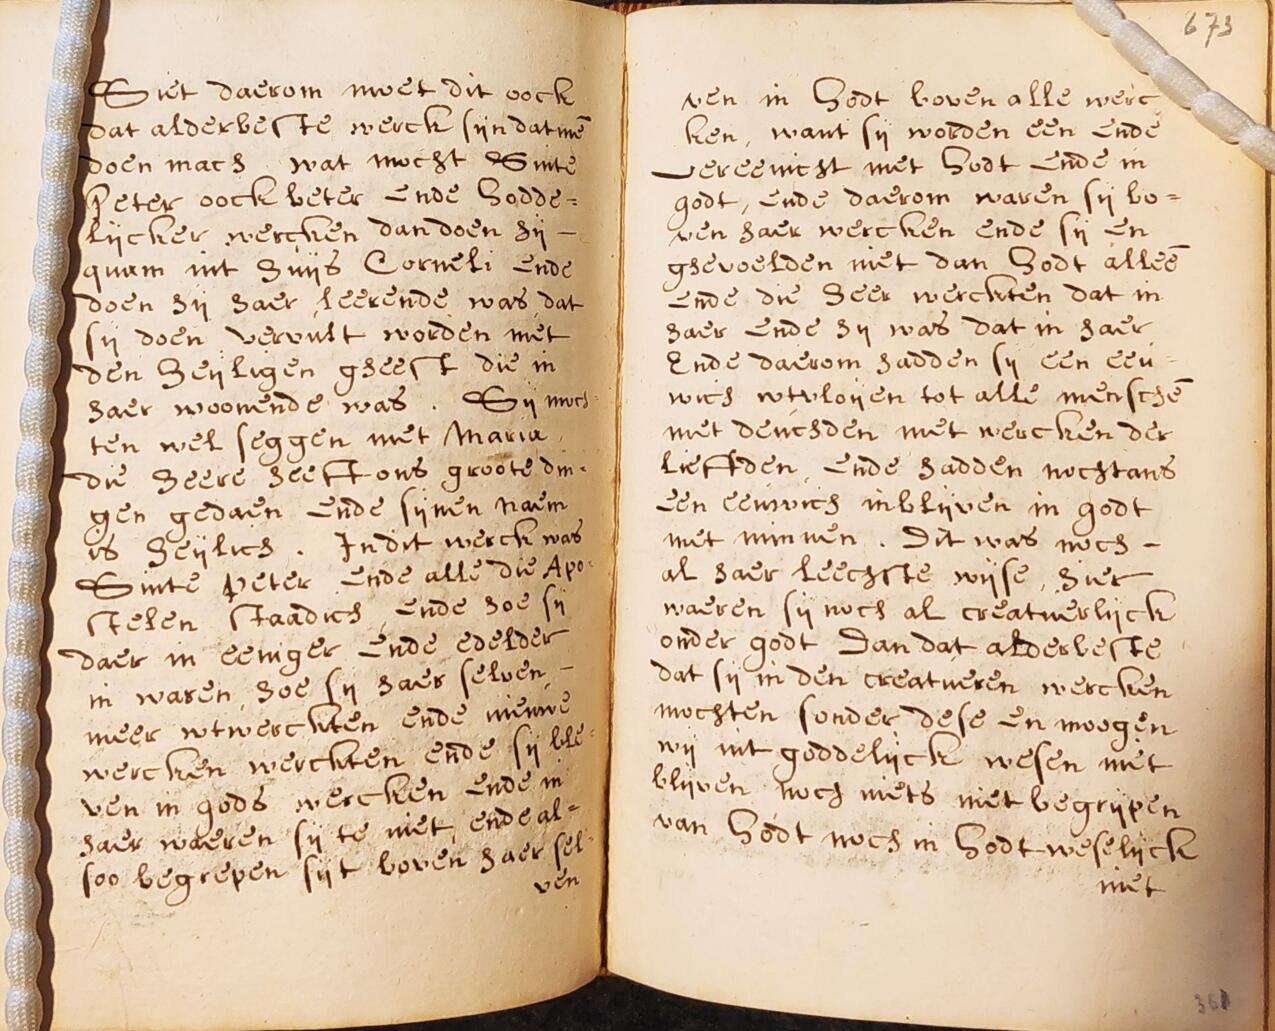 Siet daerom moet dit oock
dat alderbeste werck sijn datmē
doen mach. wat mocht Sinte
Peter oock beter ende Godde=
lijcker wercken dan doen hij –
quam int huijs Corneli ende
doen hij haer leerende was, dat
sij doen vervult worden met
den Heijligen gheest die in
haer woonende was. Sij moch-
ten wel seggen met Maria,
die Heere heeft ons groote din-
gen gedaen ende sijnen naem
is Heijlich. In dit werck was
Sinte Peter ende alle die Apo-
stelen staadich, ende hoe sij
daer in eeniger ende edelder
in waren, hoe sij haer selven –
meer wtwerckten ende nieuwe
wercken werckten ende sij ble-
ven in gods wercken ende in
haer waeren sij te niet, ende al=
soo begrepen sijt boven haer sel-
ven
673
ven in Godt boven alle werc
ken, want sij worden een ende
vereenicht met Godt ende in
godt, ende daerom waren sij bo=
ven haer wercken ende sij en
ghevoelden niet dan Godt alleē
ende die Heer werckten dat in
haer ende hij was dat in haer
Ende daerom hadden sij een eeu-
wich wtvloijen tot alle menschē
met deuchden met wercken der
liefden, ende hadden nochtans
een eeuwich inblijven in godt
met minnen. Dit was noch –
al haer leechste wijse, hier
waeren sij noch al creatuerlijck
onder godt Dan dat alderbeste
dat sij in den creatueren wercken
mochten sonder dese en moogen
wij int goddelijck wesen niet
blijven noch niets niet begrijpen
van Godt noch in Godt weselijck
niet